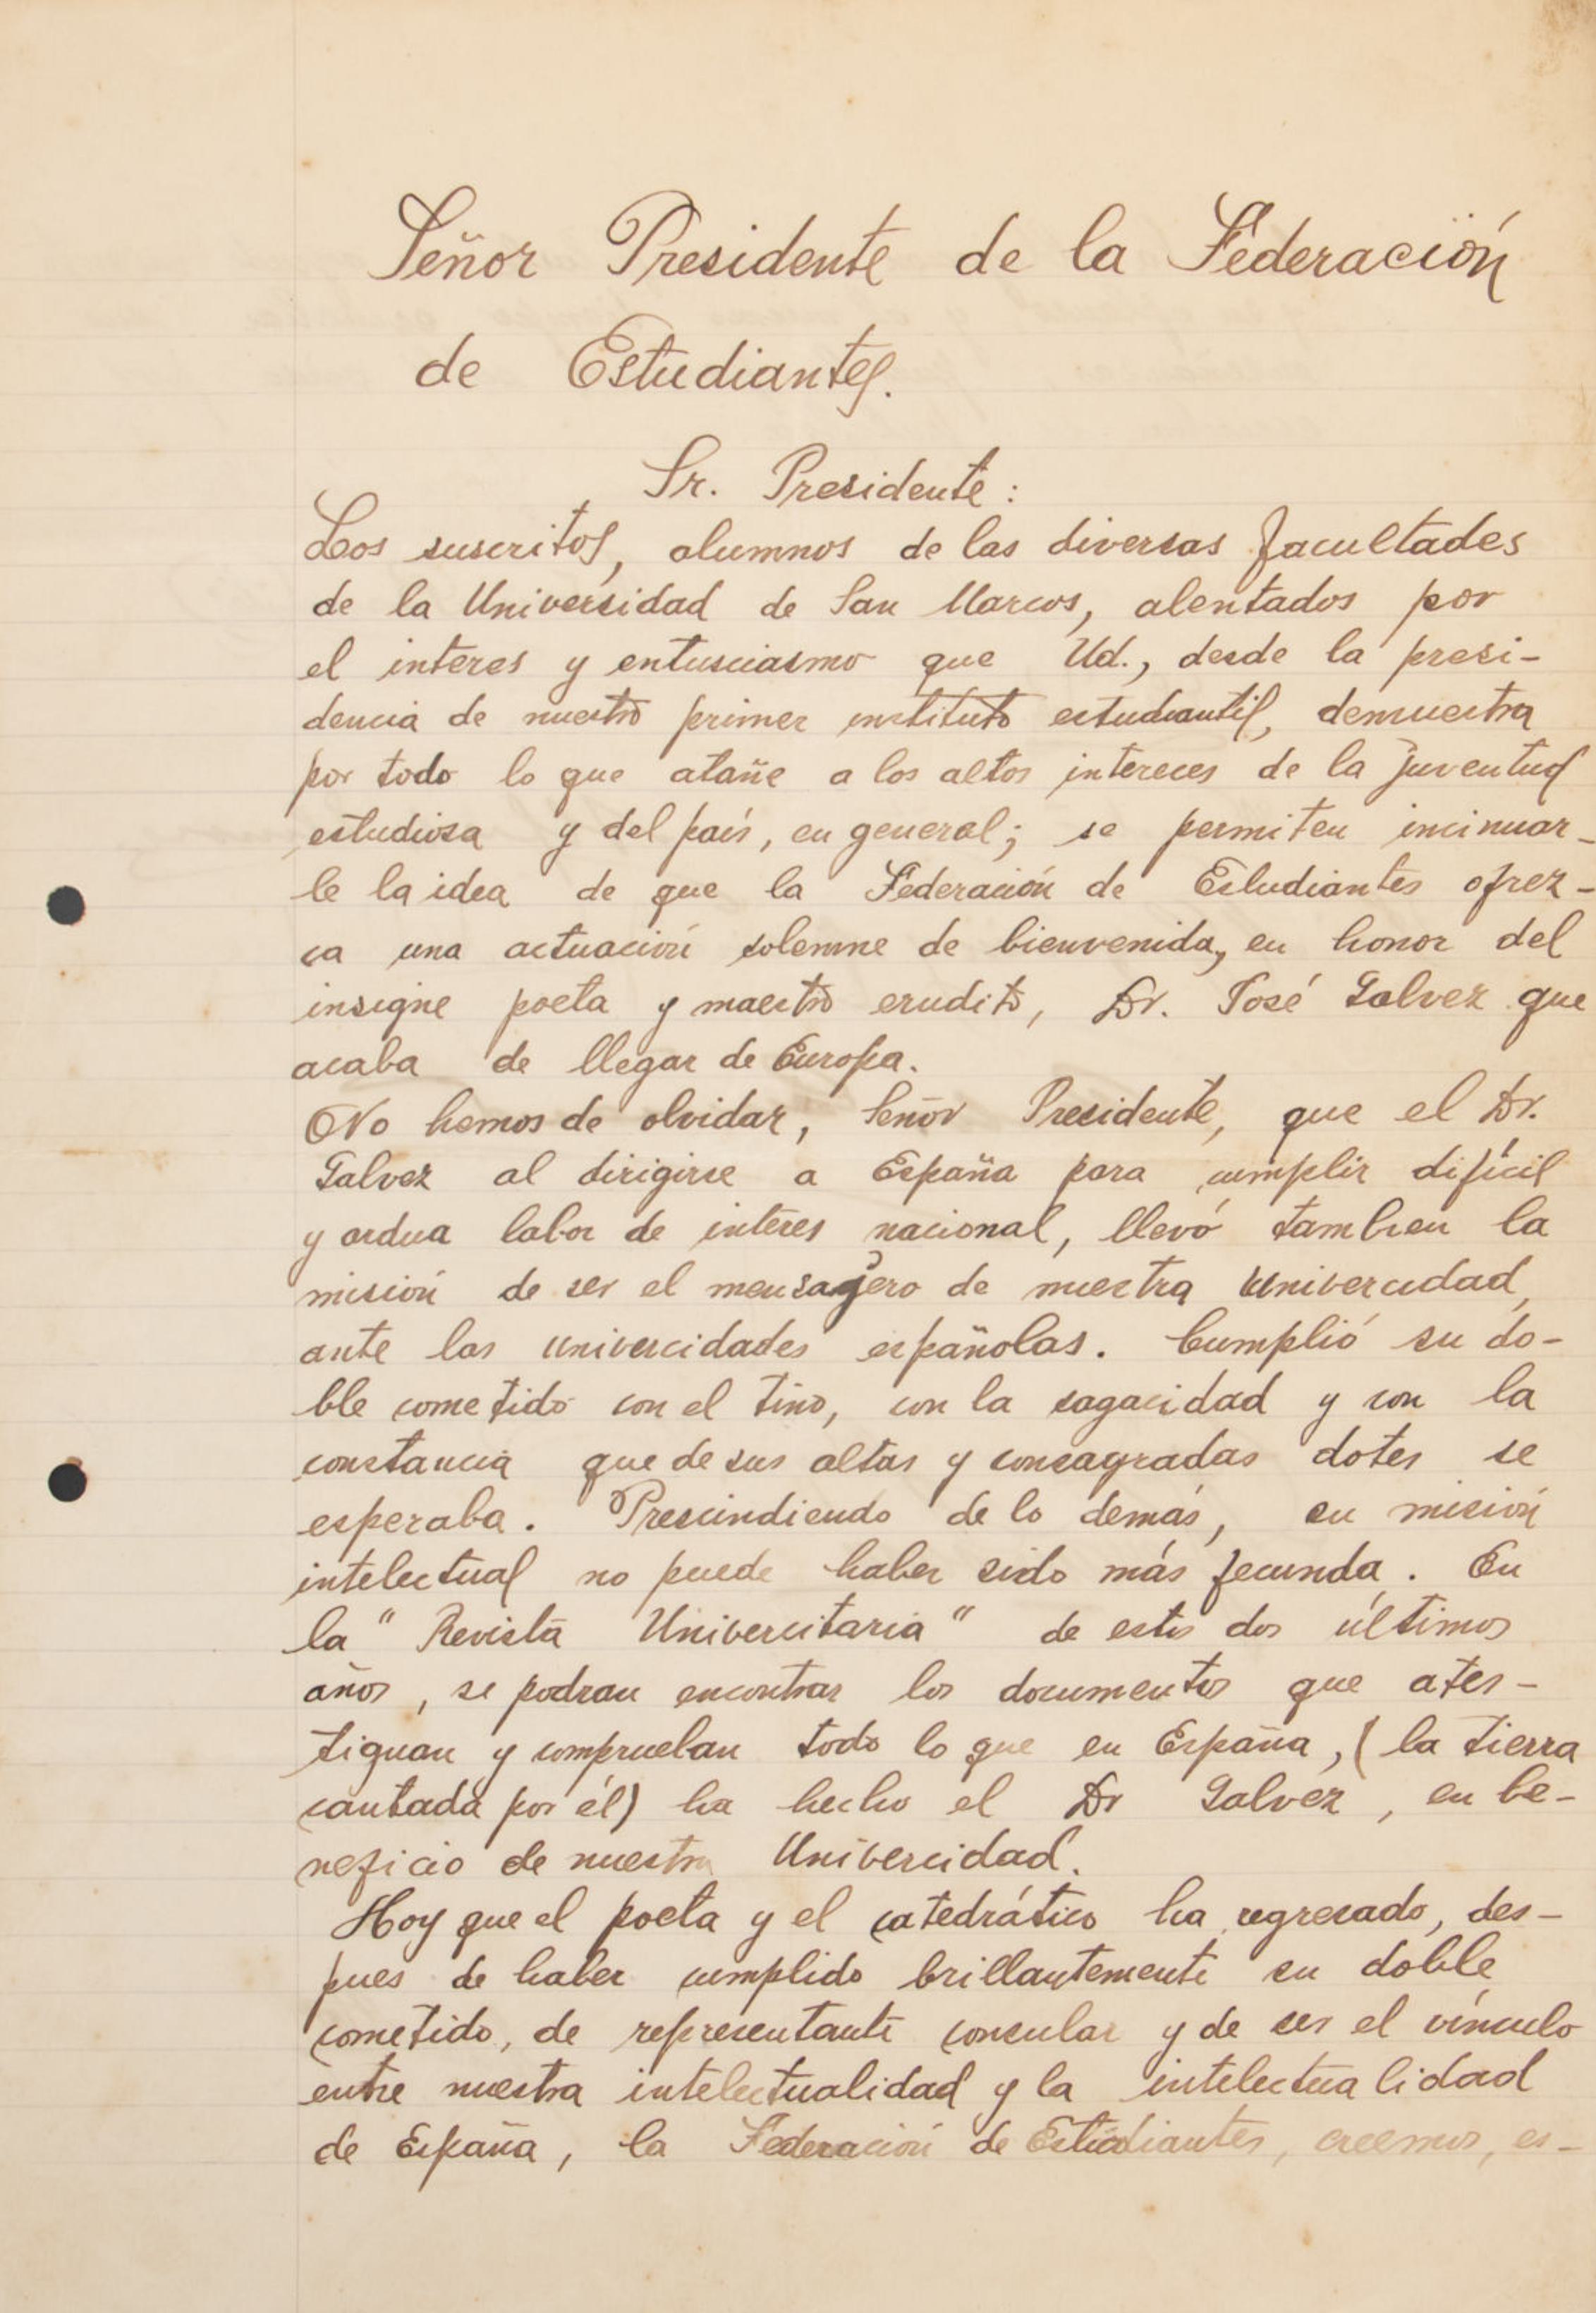 Señor Presidente de la Federación
de Estudiantes.
Sr. Presidente:
Los suscritos, alumnos de las diversas facultades
de la Universidad de San Marcos, alentados por
el interes y entusciasmo que Ud., desde la presi-
dencia de nuestro primer instituto estudiantil, demuestra
por todo lo que atañe a los altos intereces de la juventud
estudiosa y del país, en general; se permiten incinuar-
le la idea de que la Federación de Estudiantes ofrez-
ca una actuación solemne de bienvenida, en honor del
insigne poeta y maestro erudito, Dr. José Galvez que
acaba de llegar de Europa.
No hemos de olvidar, Señor Presidente, que el Dr.
Galvez al dirigirse a España para cumplir difícil
y ardua labor de interes nacional, llevó tambien la
misión de ser el mensagero de nuestra Univercidad,
ante las univercidades españolas. Cumplió su do-
ble cometido con el tino, con la sagacidad y con la
constancia que de sus altas y consagradas dotes se
esperaba. Prescindiendo de lo demás, su misión
intelectual no puede haber sido más fecunda. En
la "Revista Univercitaria" de estos dos últimos
años, se podran encontrar los documentos que ates-
tiguan y comprueban todo lo que en España, (la tierra
cantada por él) ha hecho el Dr Galvez, en be-
neficio de nuestra Univercidad.
Hoy que el poeta y el catedrático ha regresado, des-
pues de haber cumplido brillantemente su doble
cometido, de representante consular y de ser el vínculo
entre nuestra intelectualidad y la intelectualidad
de España, la Federación de Estudiantes, creemos, es-